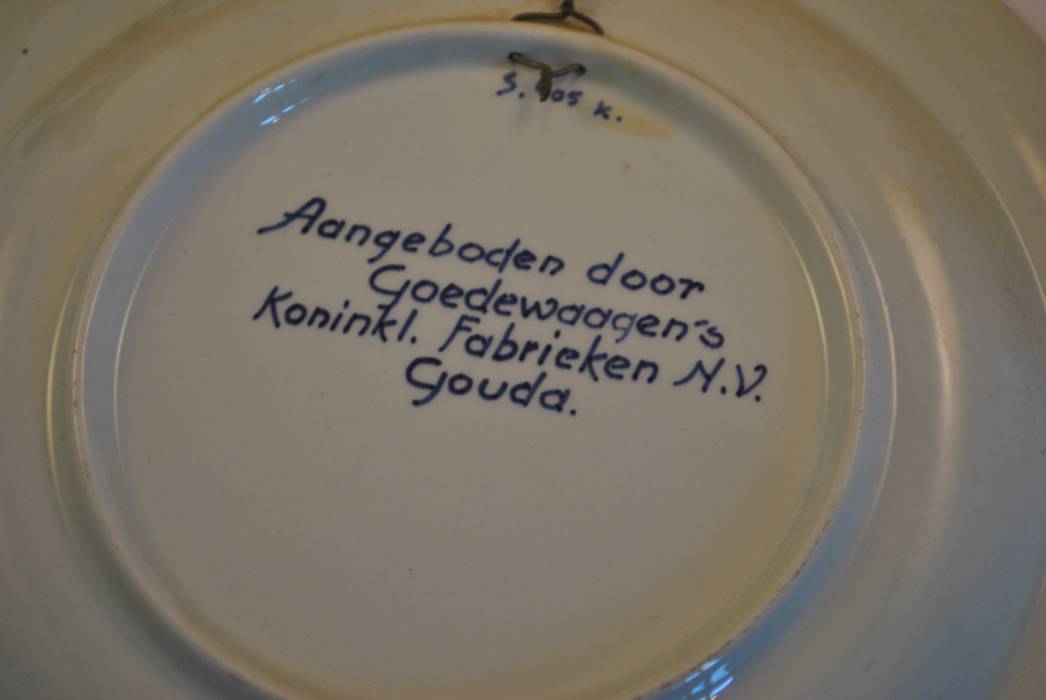 S. 405 K.
Aangeboden door
Goedewaagen's
Koninkl. Fabrieken N.V.
Gouda.